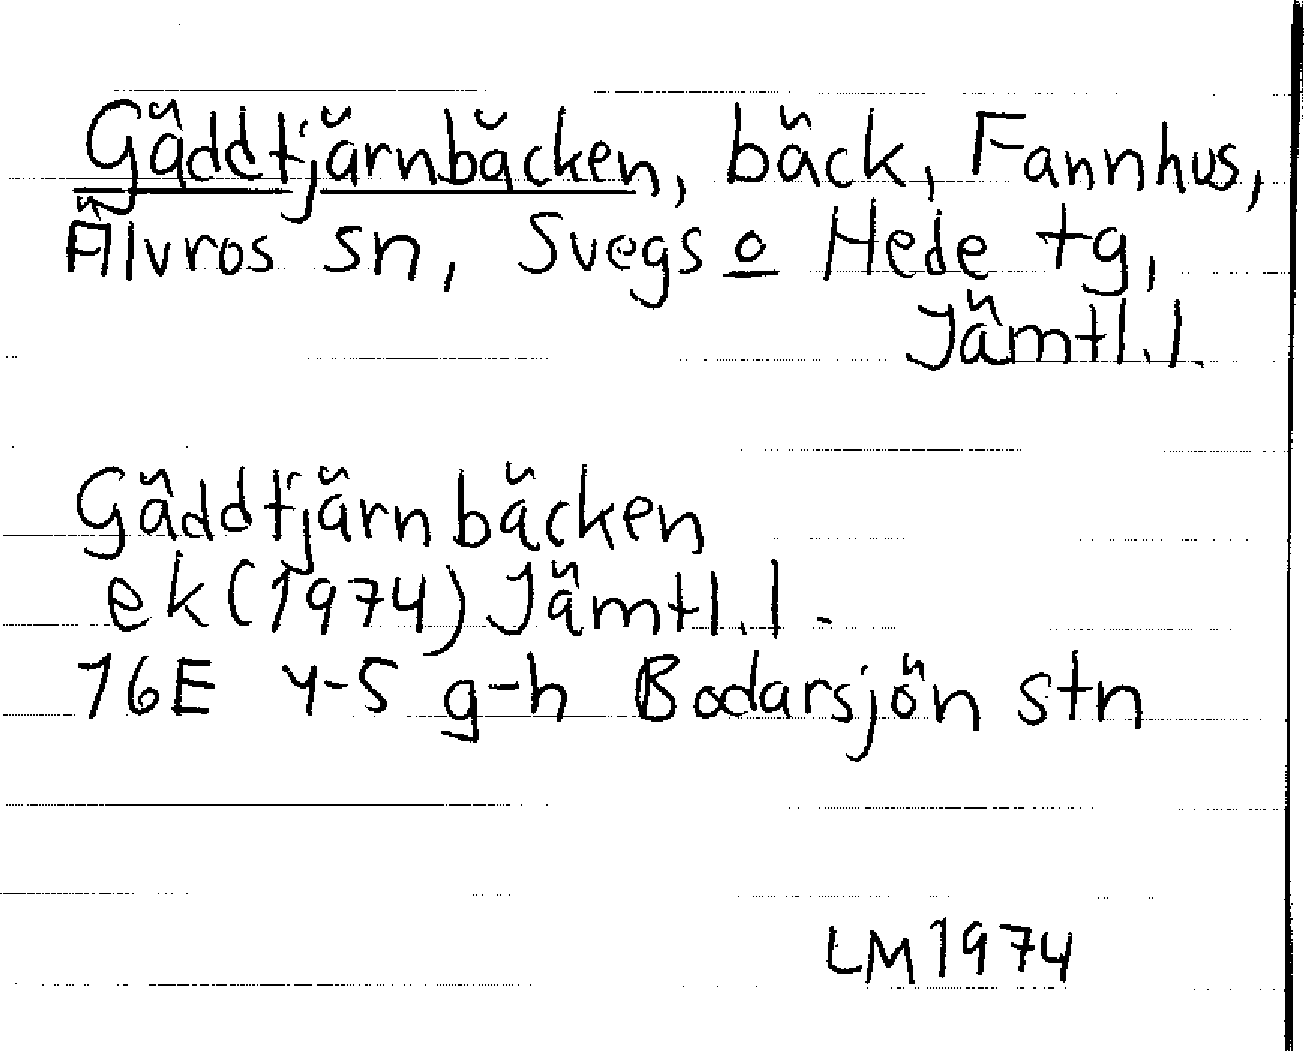 Gäddtjärnbäcken, bäck, Fannhus,
Älvros sn, Svegs o Hede tg,
Jämtl.l.
Gäddtjärnbäcken
ek(1974) Jämtl.l.
16E 4-5 g-h Bodarsjön stn
LM 1974